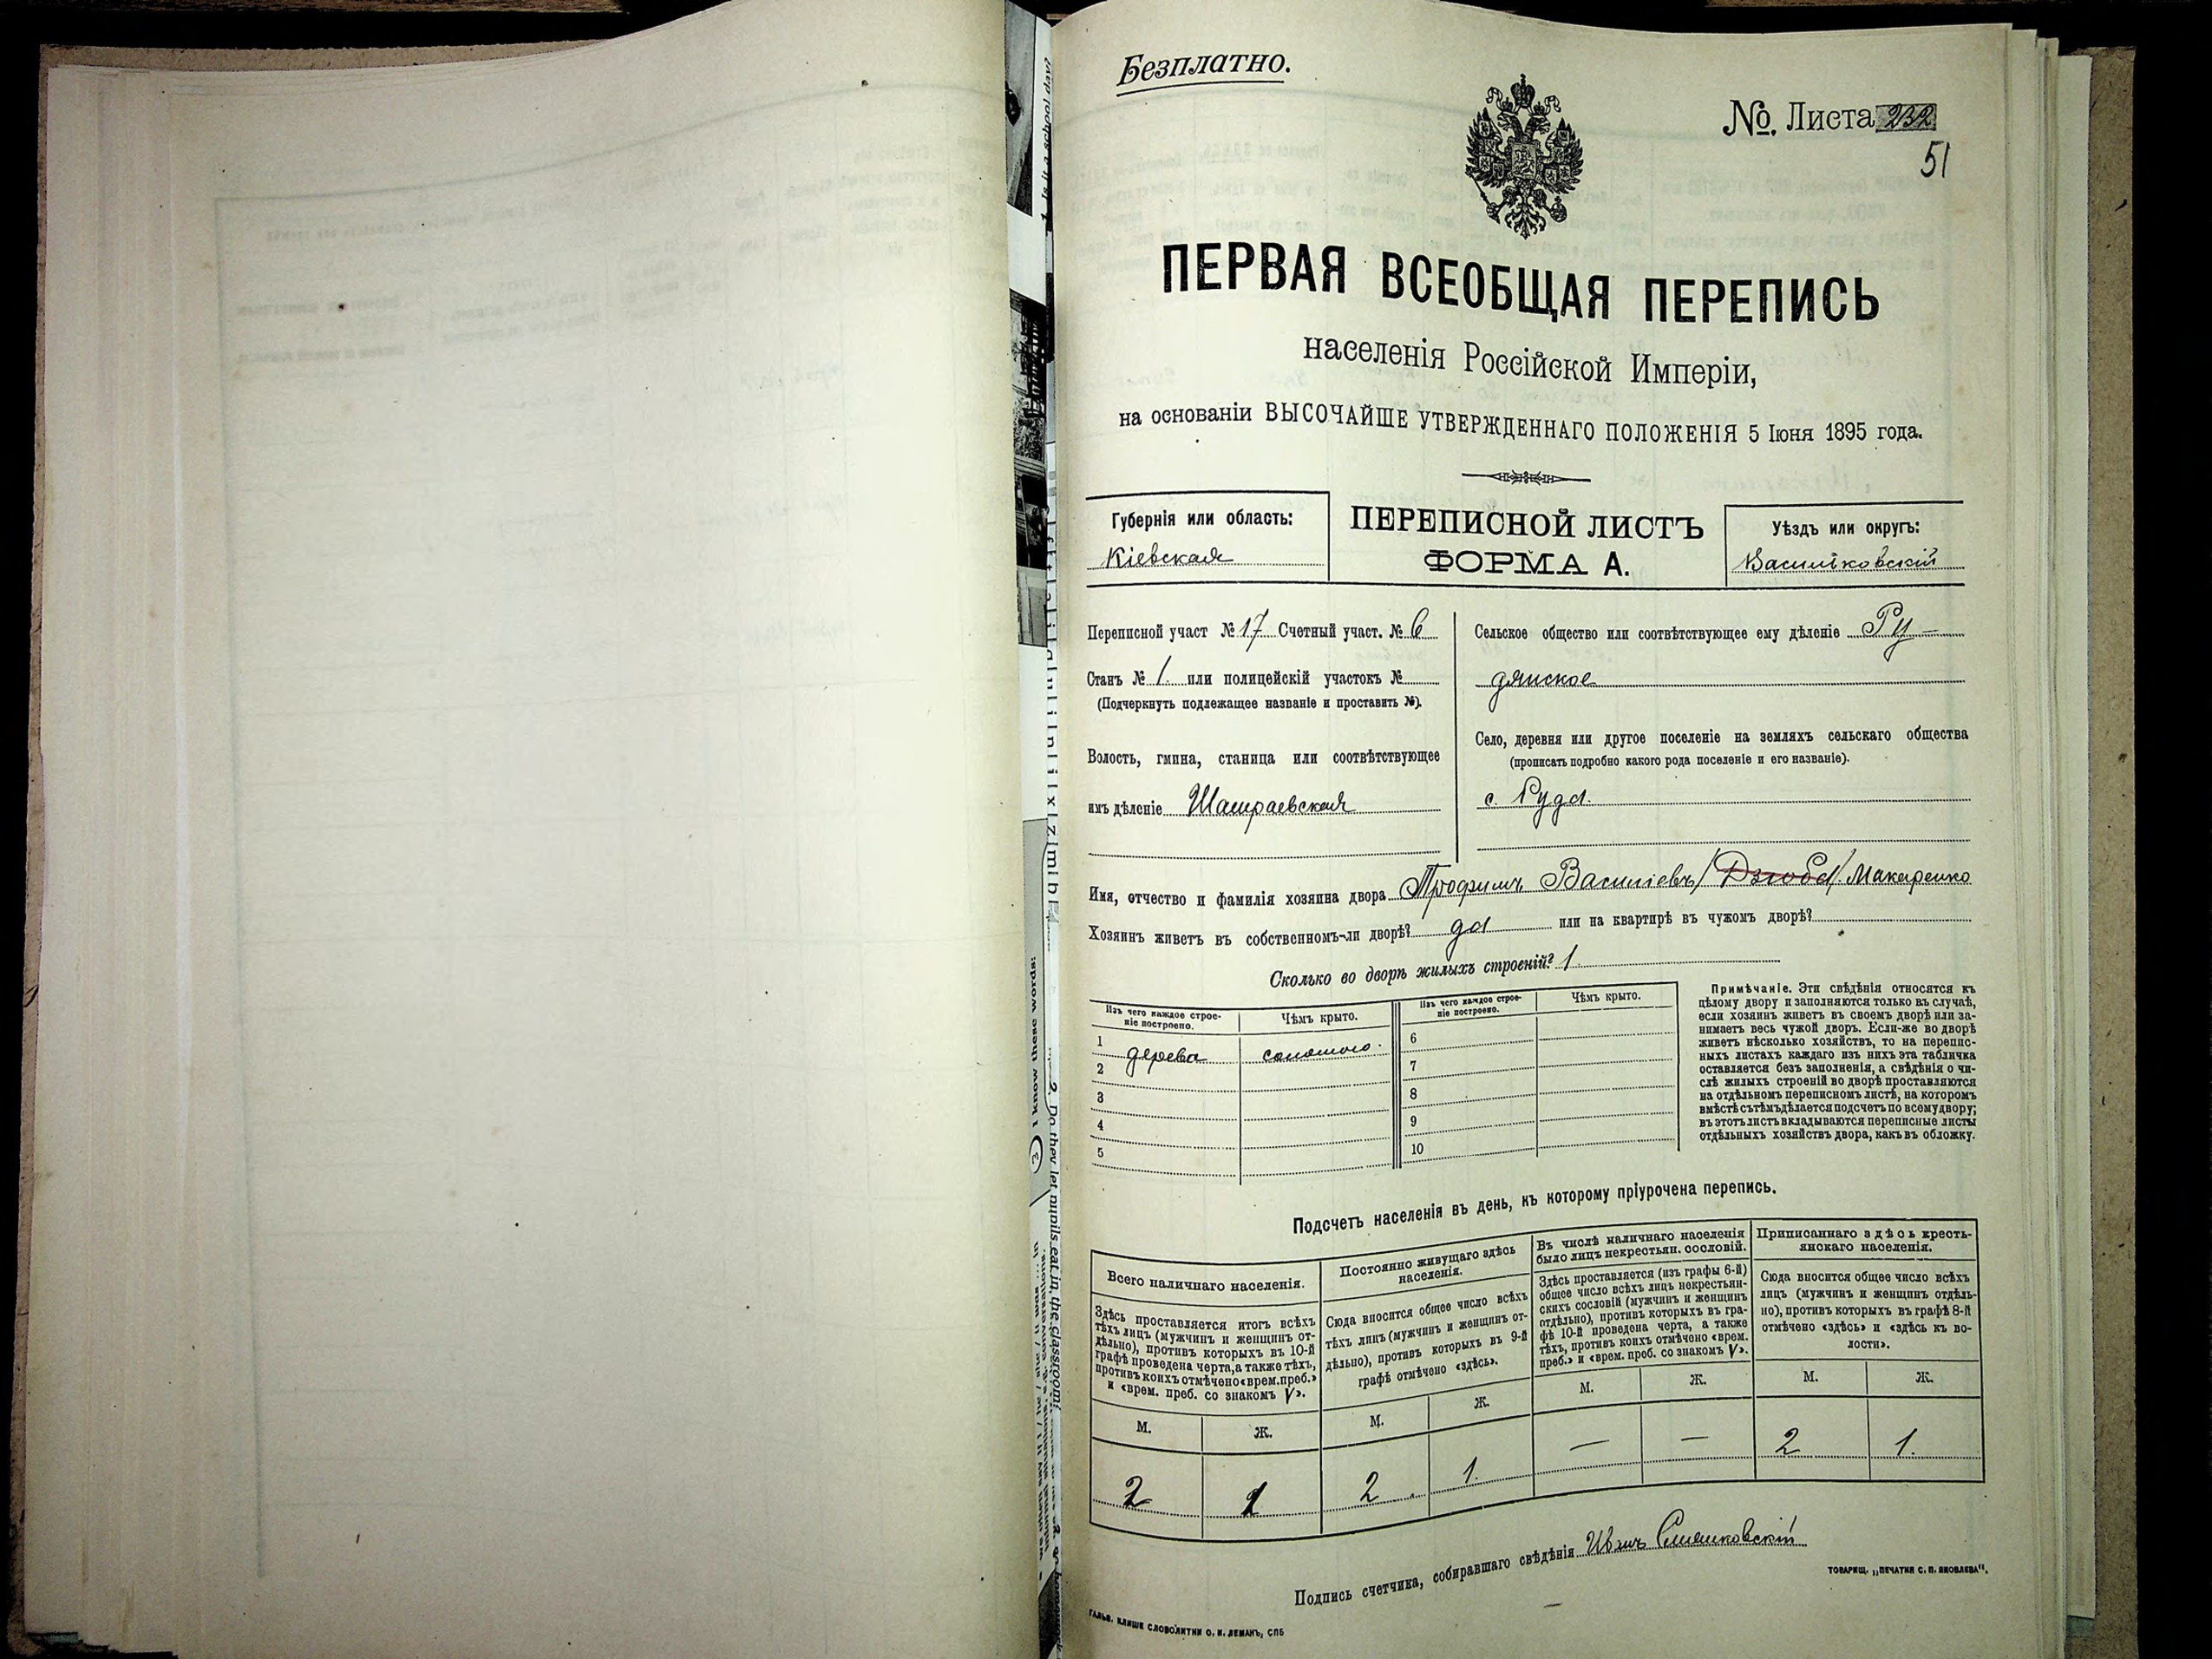 Безплатно.
№. Листа 232
51
ПЕРВАЯ ВСЕОБЩАЯ ПЕРЕПИСЬ
населенія Россійской Имперіи,
на основаніи ВЫСОЧАЙШЕ УТВЕРЖДЕННАГО ПОЛОЖЕНІЯ 5 Іюня 1895 года.
Губернія или область:
Кіевская
ПЕРЕПИСНОЙ ЛИСТЪ
ФОРМА А.
Уѣздъ или округъ:
Васильковскій
Переписной участ №17 Счетный участ. № 6
Станъ № 1. или полицейскій участокъ №
(Подчеркнуть подлежащее названіе и проставить №).
Волость, гмина, станица или соотвѣтствующее
имъ дѣленіе Шамраевская
Сельское общество или соотвѣтствующее ему дѣленіе Ру-
дянское
Село, деревня или другое поселеніе на земляхъ сельскаго общества
(прописать подробно какого рода поселеніе и его названіе).
с. Руда.
Имя, отчество и фамилія хозяина двора Трофимъ Васильевъ /Дзюба/. Макаренко
Хозяинъ живетъ въ собственномъ-ли дворѣ? да или на квартирѣ въ чужомъ дворѣ?
Сколько во дворѣ жилыхъ строеній? 1
Изъ чего каждое строе-
ніе построено.
Чѣмъ крыто.
Изъ чего каждое строе-
ніе построено.
Чѣмъ крыто.
1 дерева соломою. 6
2 7
3 8
4 9
5 10
Примѣчаніе. Эти свѣдѣнія относятся къ
цѣлому двору и заполняются только въ случаѣ,
если хозяинъ живетъ въ своемъ дворѣ или за-
нимаетъ весь чужой дворъ. Если-же во дворѣ
живетъ нѣсколько хозяйствъ, то на перепис-
ныхъ листахъ каждаго изъ нихъ эта табличка
оставляется безъ заполненія, а свѣдѣнія о чи-
слѣ жилыхъ строеній во дворѣ проставляются
на отдѣльномъ переписномъ листѣ, на которомъ
вмѣстѣ съ тѣмъ дѣлается подсчетъ по всему двору;
въ этотъ листъ вкладываются переписные листы
отдѣльныхъ хозяйствъ двора, какъ въ обложку.
Подсчетъ населенія въ день, къ которому пріурочена перепись.
Всего наличнаго населенія.
Здѣсь проставляется итогъ всѣхъ
тѣхъ лицъ (мужчинъ и женщинъ от-
дѣльно), противъ которыхъ въ 10-й
графѣ проведена черта, а также тѣхъ,
противъ коихъ отмѣчено «врем. преб.»
и «врем. преб. со знакомъ V».
М. Ж.
2 1
Постоянно живущаго здѣсь
населенія.
Сюда вносится общее число всѣхъ
тѣхъ лицъ (мужчинъ и женщинъ от-
дѣльно), противъ которыхъ въ 9-й
графѣ отмѣчено «здѣсь».
М. Ж.
2 1.
Въ числѣ наличнаго населенія
было лицъ некрестьян. сословій.
Здѣсь проставляется (изъ графы 6-й)
общее число всѣхъ лицъ некрестьян-
скихъ сословій (мужчинъ и женщинъ
отдѣльно), противъ которыхъ въ гра-
фѣ 10-й проведена черта, а также
тѣхъ, противъ коихъ отмѣчено «врем.
преб.» и «врем. преб. со знакомъ V».
М. Ж.
— —
Приписаннаго здѣсь кресть-
янскаго населенія.
Сюда вносится общее число всѣхъ
лицъ (мужчинъ и женщинъ отдѣль-
но), противъ которыхъ въ графѣ 8-й
отмѣчено «здѣсь» и «здѣсь къ во-
лости».
М. Ж.
2 1.
Подпись счетчика, собиравшаго свѣдѣнія Иванъ
ТОВАРИЩ. „ПЕЧАТНЯ С. П. ЯКОВЛЕВА".
ГАЛЬВ. КЛИШЕ СЛОВОЛИТНИ О. И. ЛЕМАНЪ, СПБ
1. Is it a school
3 I know these words:
2. Do they let pupils eat in the classroom?